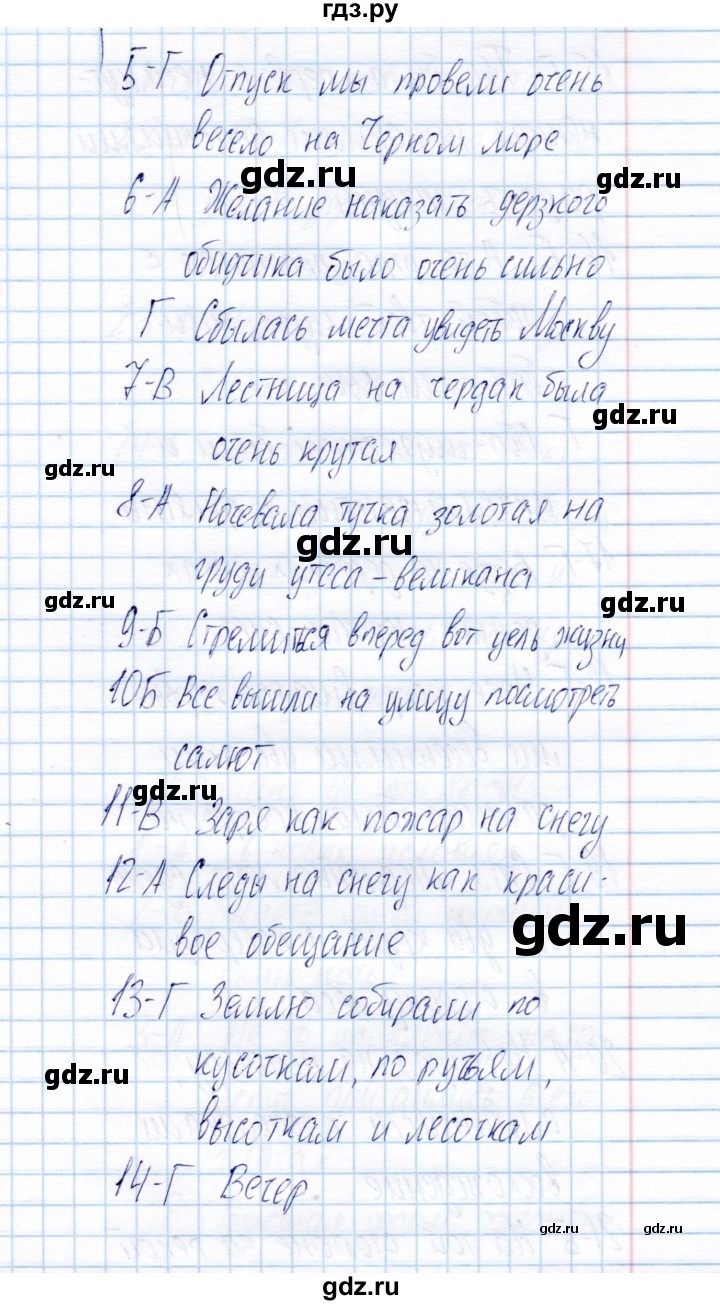 гдз.ру
5-Г Отпуск мы провели очень
весело на Черном море
gdz.ru
gdz.ru
6-А Желание наказать дерзкого
обидчика было очень сильно
Г Сбылась мечта увидеть Москву
7-В Лестница на чердак была
gdz.ru
очень крутая
gdz.ru
8-А Ночевала тучка золотая на
gdz.ru
груди утеса-великана
gdz.ru
gdz.ru
9-Б Стремиться вперед вот цель жизни
10Б Все вышли на улицу посмотреть
салют
gdz.ru
11-В Заря как пожар на снегу
12-А Следы на снегу как краси-
gdz.ru
вое обещание
13-Г Землю собирали по
gdz.ru
кусочкам, по ручьям,
высоткам и лесочкам
14-Г Вечер
gdz.ru
gdz.ru
gdz.ru